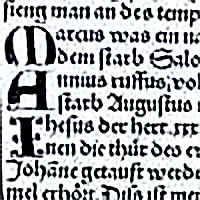 fieng man an des temp
Marcus was ein na
dem starb Salo
Annius ruffus, vol
starb Augustus
Ihesus der herr. xxx
nen die thür des er
Johāne getauft werde
mel erhört. Diſs ist me